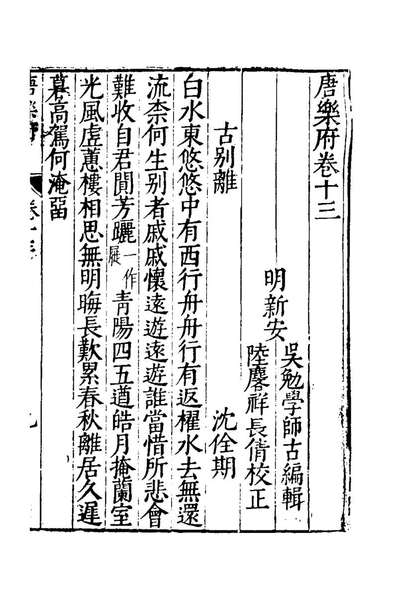 唐樂府卷十三
明新安
吳勉學師古編輯
陸麐祥長倩校正
古別離
沈佺期
白水東悠悠中有西行舟舟行有返櫂水去無還
流柰何生別者戚戚懷遠遊遠遊誰當惜所悲會
難收自君閒芳躧一作屣青陽四五遒皓月掩蘭室
光風虛蕙樓相思無明晦長歎累春秋離居久遲
暮高駕何淹畱
唐樂府
卷十三